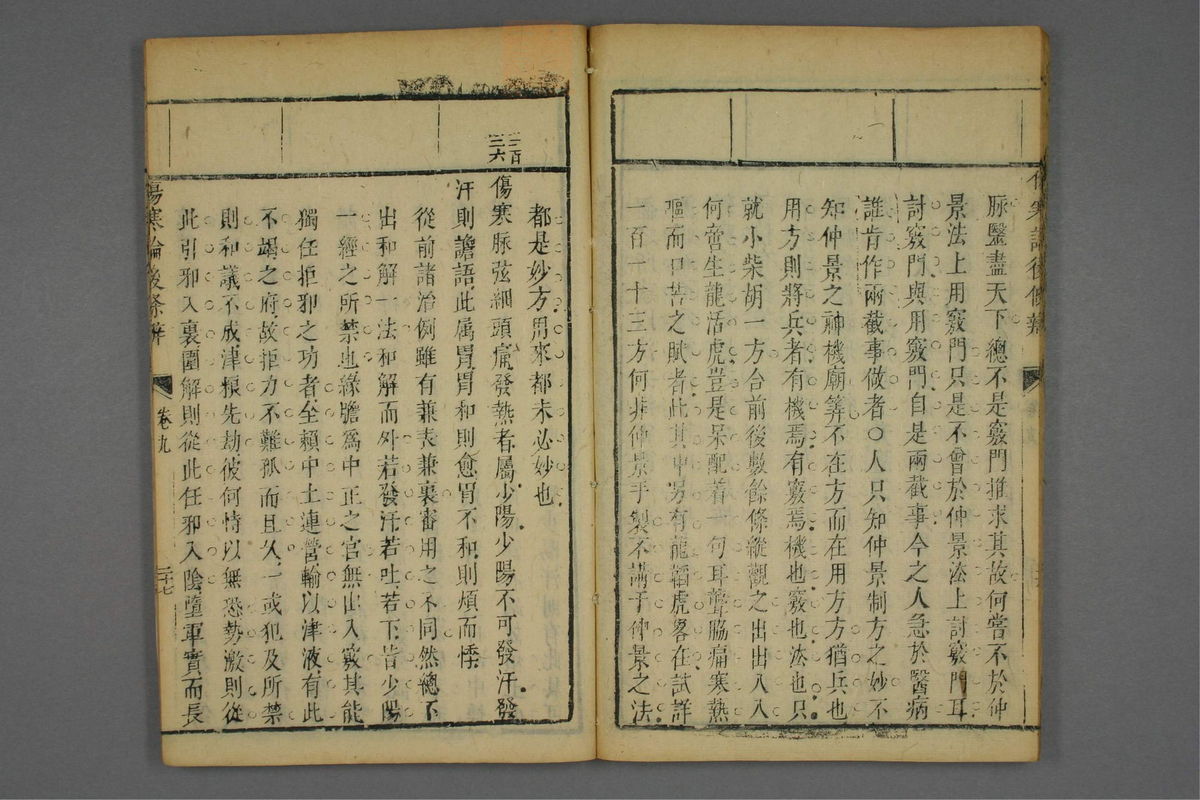 脉醫盡天下總不是竅門推求其故何嘗不於仲
景法上用竅門只是不曾於仲景法上討竅門耳
討竅門與用竅門自是兩截事今之人急於醫病
誰肯作兩截事做者○人只知仲景制方之妙不
知仲景之神機廟筭不在方而在用方方猶兵也
用方則將兵者有機焉有竅焉機也竅也法也只
就小柴胡一方合前後數餘條縱觀之出出入入
何啻生龍活虎豈是呆配着一句耳聾脇痛寒熱
嘔而口苦之賦者此其中另有龍韜虎畧在試詳
一百一十三方何非仲景手製不講于仲景之法
都是妙方用來都未必妙也
三百三六
傷寒脉弦細頭痛發熱者屬少陽少陽不可發汗發
汗則譫語此属胃胃和則愈胃不和則煩而悸
從前諸治例雖有兼表兼裏審用之不同然總不
出和解一法和解而外若發汗若吐若下皆少陽
一經之所禁也緣膽爲中正之官無出入竅其能
獨任拒邪之功者全賴中土連營輸以津液有此
不竭之府故拒力不難孤而且久一或犯及所禁
則和議不成津粮先劫彼何情以無恐勢激則從
此引邪入裏圍解則從此任邪入陰墮軍實而長
傷寒論後條辨
卷九
二十七